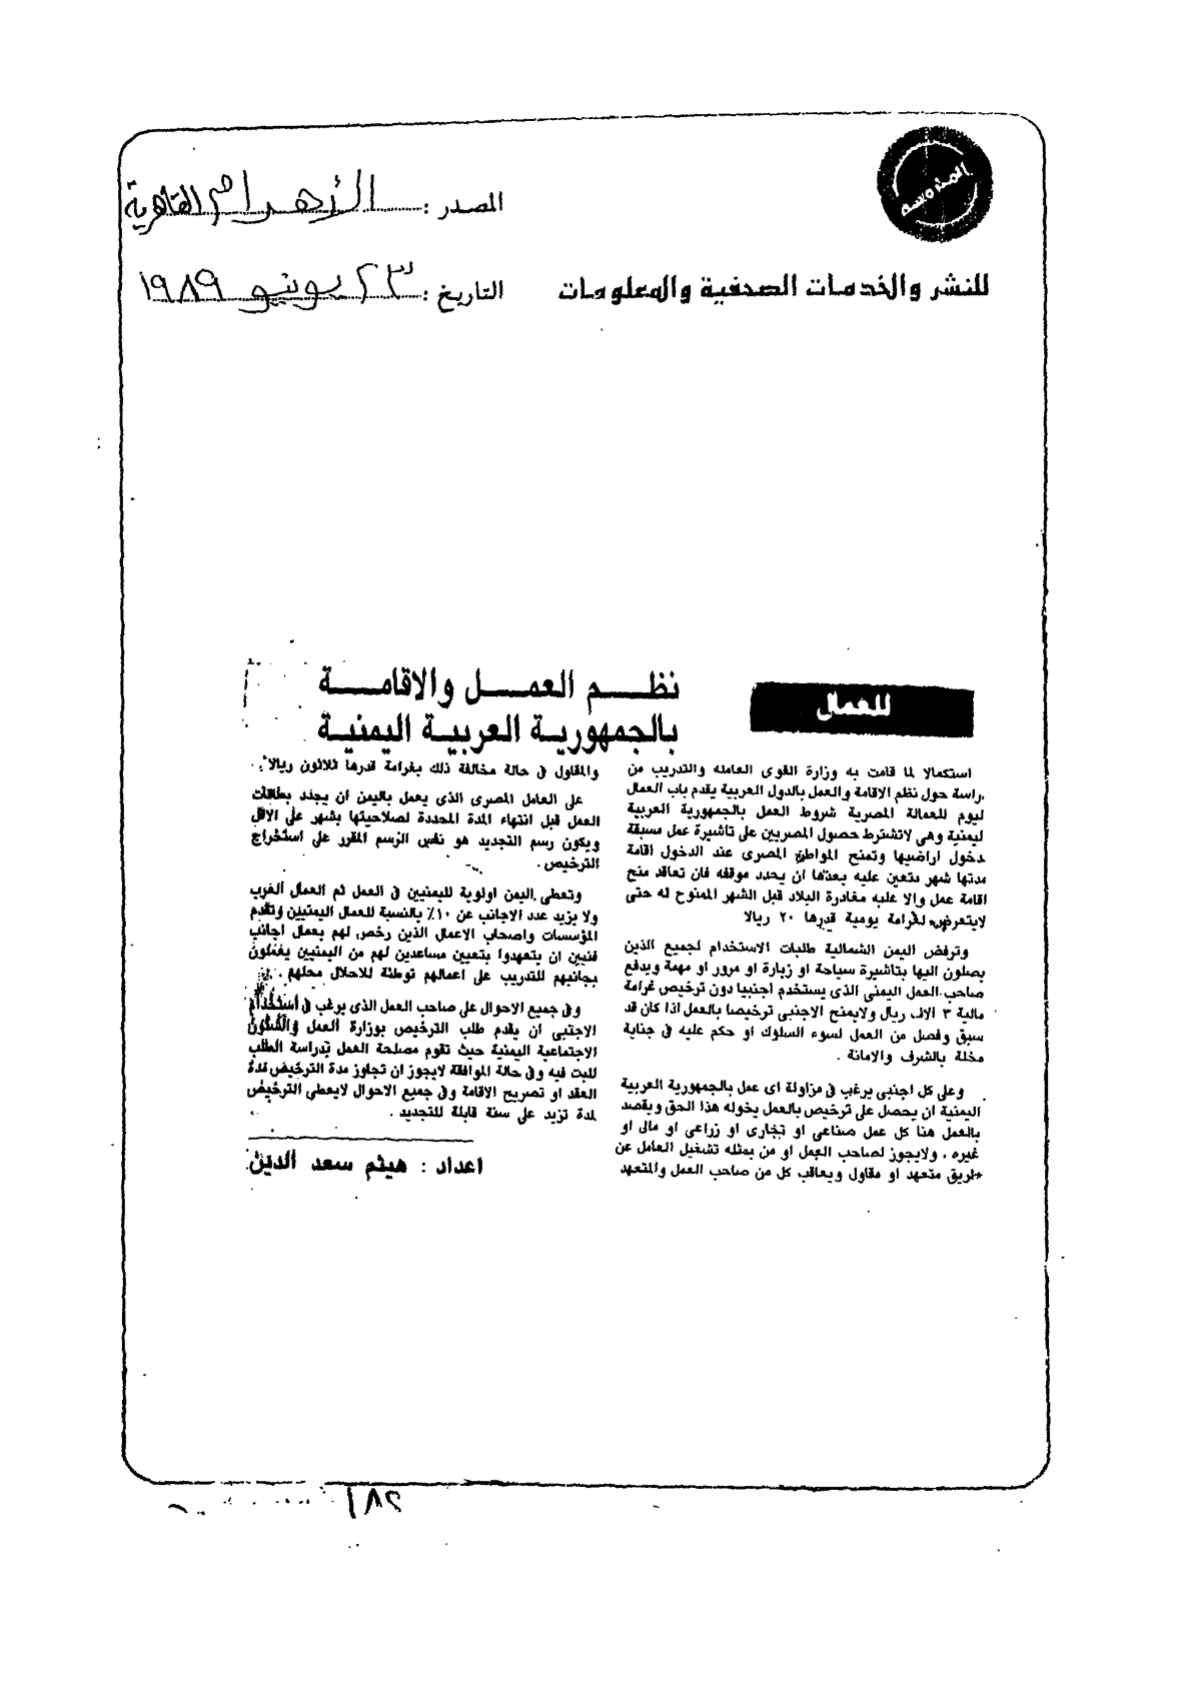 المصدر : الأهرام القاهرية
للنشر والخدمات الصحفية والمعلومات
التاريخ : ٢٣ يونيو ١٩٨٩
للعمال
نظم العمل والاقامة
بالجمهورية العربية اليمنية
استكمالا لما قامت به وزارة القوى العاملة والتدريب من
راسة حول نظم الاقامة والعمل بالدول العربية يقدم باب العمال
ليوم للعمالة المصرية شروط العمل بالجمهورية العربية
ليمنية وهى لاتشترط حصول المصريين على تاشيرة عمل مسبقة
دخول اراضيها وتمنح المواطن المصرى عند الدخول اقامة
مدتها شهر يتعين عليه بعدها ان يحدد موقفه فان تعاقد منح
اقامة عمل والا عليه مغادرة البلاد قبل الشهر الممنوح له حتى
لايتعرض لغرامة يومية قدرها ٢٠ ريالا
وترفض اليمن الشمالية طلبات الاستخدام لجميع الذين
يصلون اليها بتاشيرة سياحة او زيارة او مرور او مهمة ويدفع
صاحب العمل اليمنى الذى يستخدم اجنبيا دون ترخيص غرامة
مالية ٣ الاف ريال ولايمنح الاجنبى ترخيصا بالعمل اذا كان قد
سبق وفصل من العمل لسوء السلوك او حكم عليه فى جناية
مخلة بالشرف والامانة .
وعلى كل اجنبى يرغب فى مزاولة اى عمل بالجمهورية العربية
اليمنية ان يحصل على ترخيص بالعمل يخوله هذا الحق ويقصد
بالعمل هنا كل عمل صناعى او تجارى او زراعى او مالى او
غيره ، ولايجوز لصاحب العمل او من يمثله تشغيل العامل عن
طريق متعهد او مقاول ويعاقب كل من صاحب العمل والمتعهد
والمقاول فى حالة مخالفة ذلك بغرامة قدرها ثلاثون ريالا .
على العامل المصرى الذى يعمل باليمن ان يجدد بطاقات
العمل قبل انتهاء المدة المحددة لصلاحيتها بشهر على الاقل
ويكون رسم التجديد هو نفس الرسم المقرر على استخراج
الترخيص .
وتعطى اليمن اولوية لليمنيين فى العمل ثم العمال العرب
ولا يزيد عدد الاجانب عن ١٠٪ بالنسبة للعمال اليمنيين وتقدم
المؤسسات واصحاب الاعمال الذين رخص لهم بعمال اجانب
فنيين ان يتعهدوا بتعيين مساعدين لهم من اليمنيين يعملون
بجانبهم للتدريب على اعمالهم توطئة للاحلال محلهم .
وفى جميع الاحوال على صاحب العمل الذى يرغب فى استخدام
الاجنبى ان يقدم طلب الترخيص بوزارة العمل والشئون
الاجتماعية اليمنية حيث تقوم مصلحة العمل بدراسة الطلب
للبت فيه وفى حالة الموافقة لايجوز ان تجاوز مدة الترخيص مدة
العقد او تصريح الاقامة وفى جميع الاحوال لايعطى الترخيص
لمدة تزيد على سنة قابلة للتجديد .
اعداد : هيثم سعد الدين